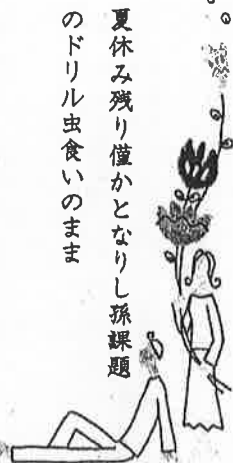 夏休み残り僅かとなりし孫課題
のドリル虫食いのまま